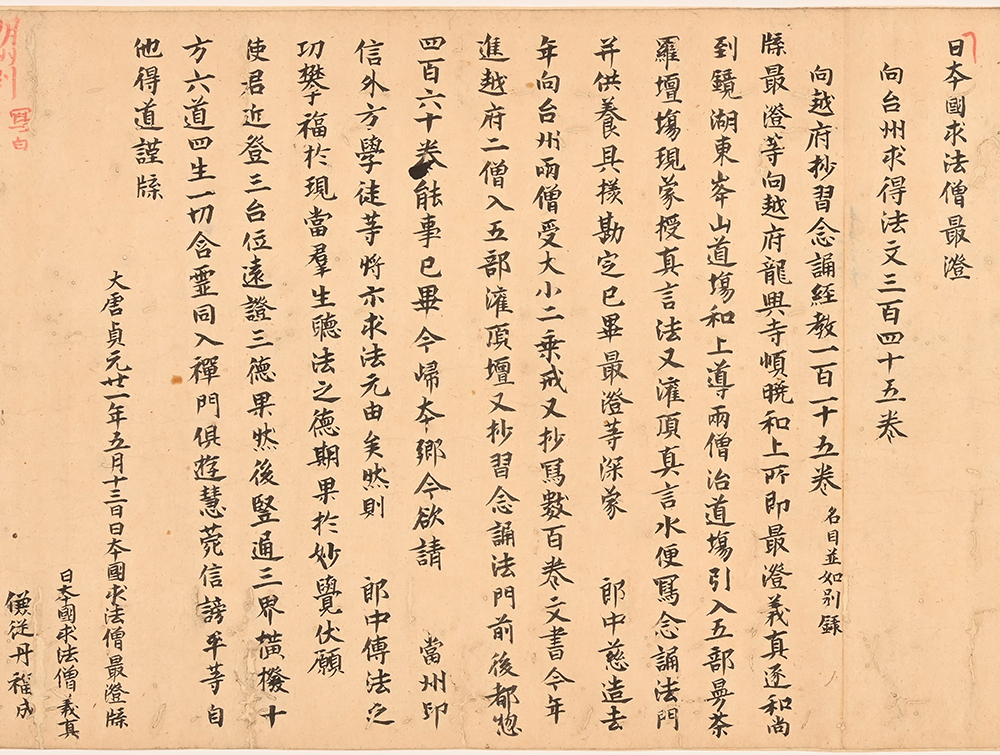 日本國求法僧最澄
向台州求得法文三百四十五卷
向越府抄習念誦經教一百一十五卷 名目並如别錄
牒最澄等向越府龍興寺順曉和上所即最澄義真逐和尚
到鏡湖東峯山道塲和上導兩僧治道塲引入五部曼荼
羅壇塲現蒙授真言法又灌頂真言水便寫念誦法門
并供養具樣勘定已畢最澄等深蒙 郎中慈造去
年向台州兩僧受大小二乘戒又抄寫數百卷文書今年
進越府二僧入五部灌頂壇又抄習念誦法門前後都惣
四百六十卷能事已畢今歸本鄉今欲請 當州印
信外方學徒等將示求法元由矣然則 郎中傳法之
功攀福於現當羣生聽法之德期果於妙覺伏願
使君近登三台位遠證三德果然後竪通三界撗撥十
方六道四生一切含靈同入禪門俱遊慧菀信謗平等自
他得道謹牒
大唐貞元廿一年五月十三日日本國求法僧最澄牒
日本國求法僧義真
傔從丹福成